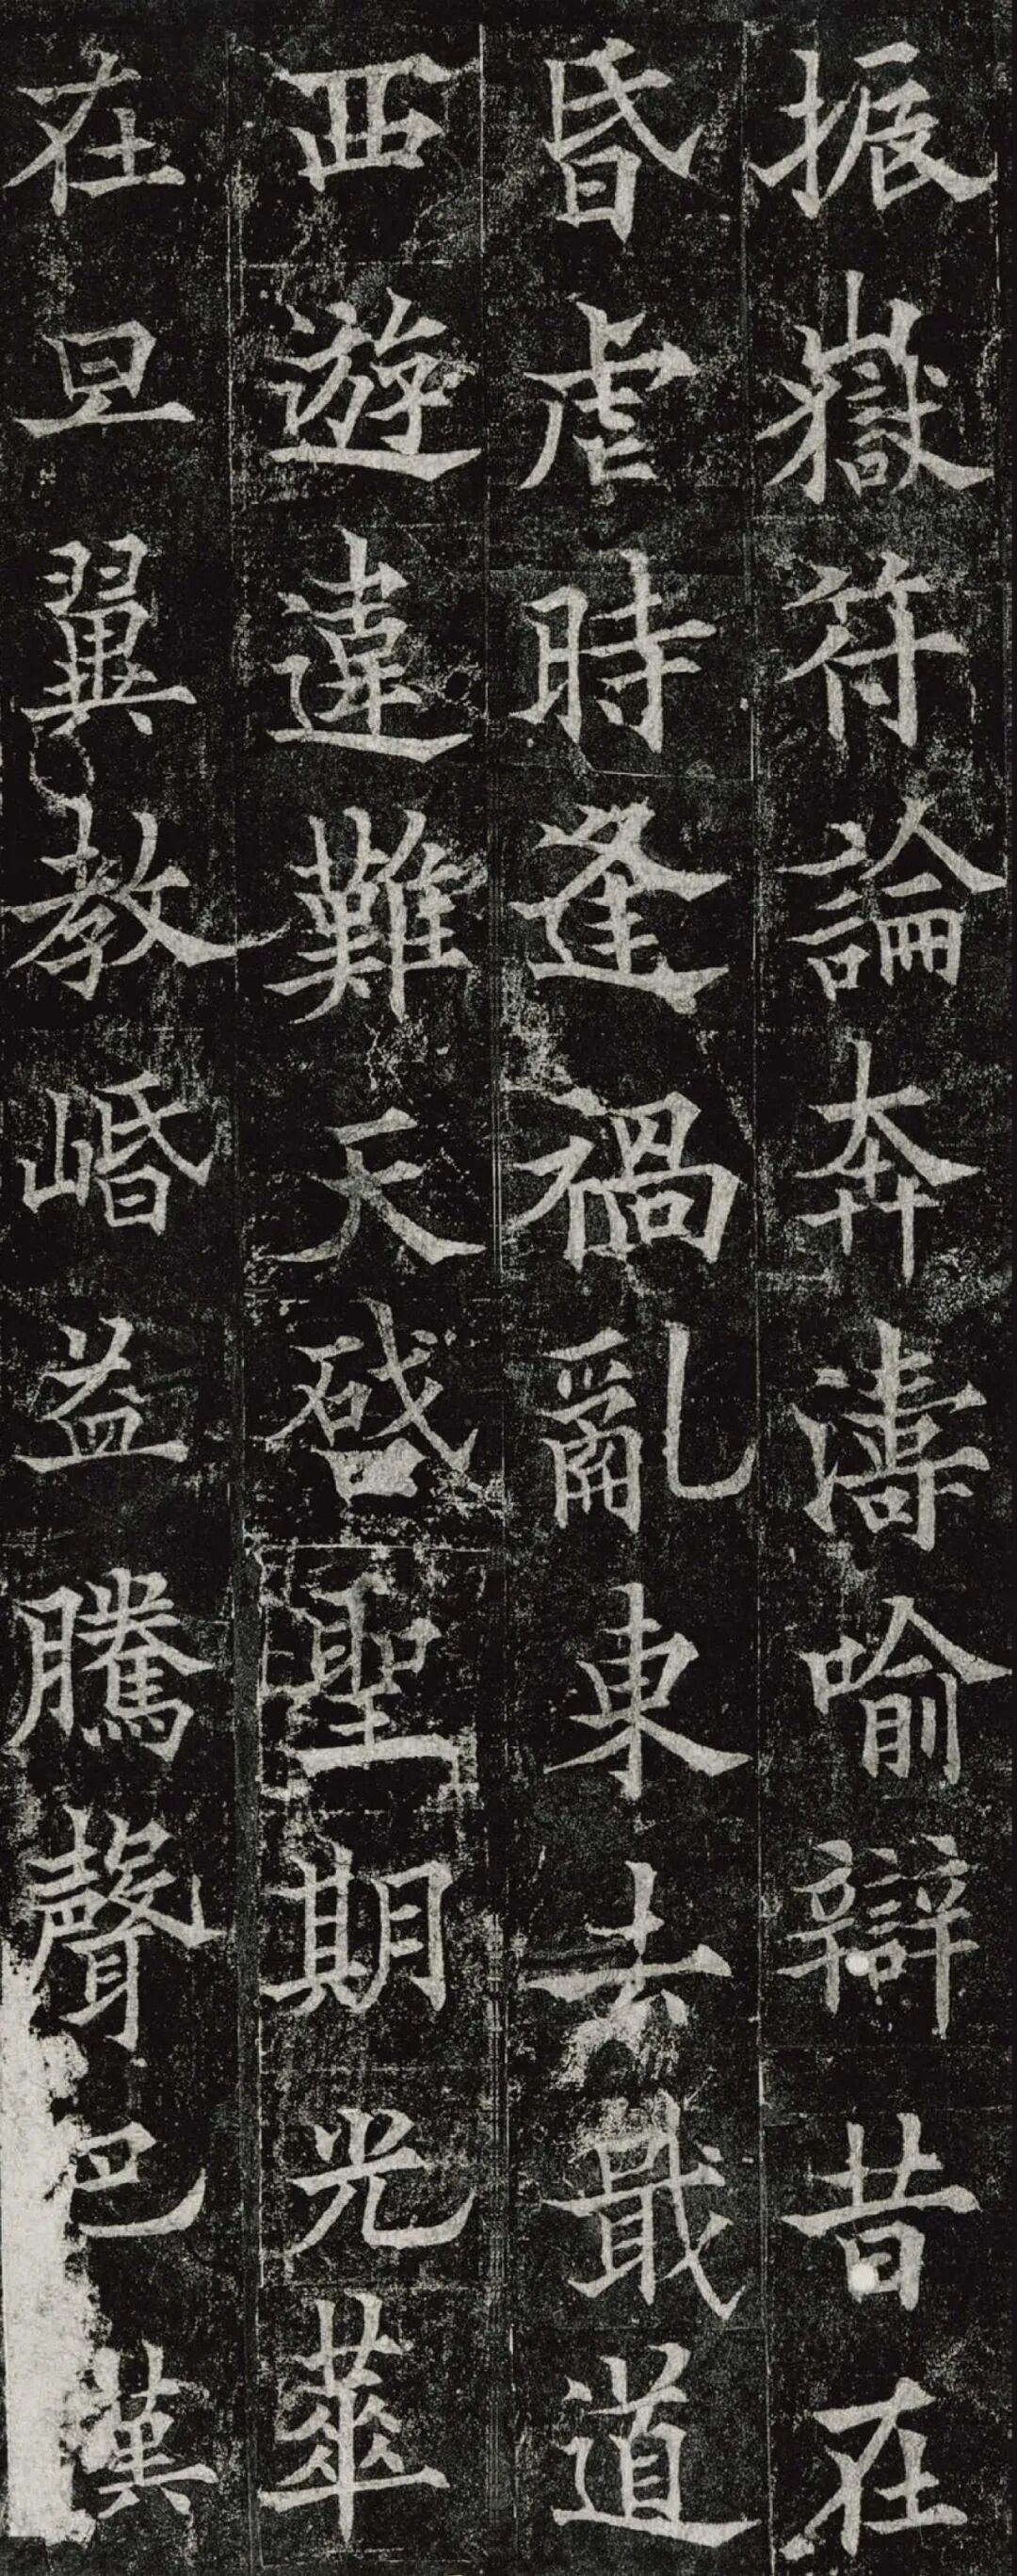 振嶽符論奔濤喻辯昔在
昏虐時逢禍亂東去戢道
西遊違難天啓聖期光華
在旦翼教崏益騰聲巴漢